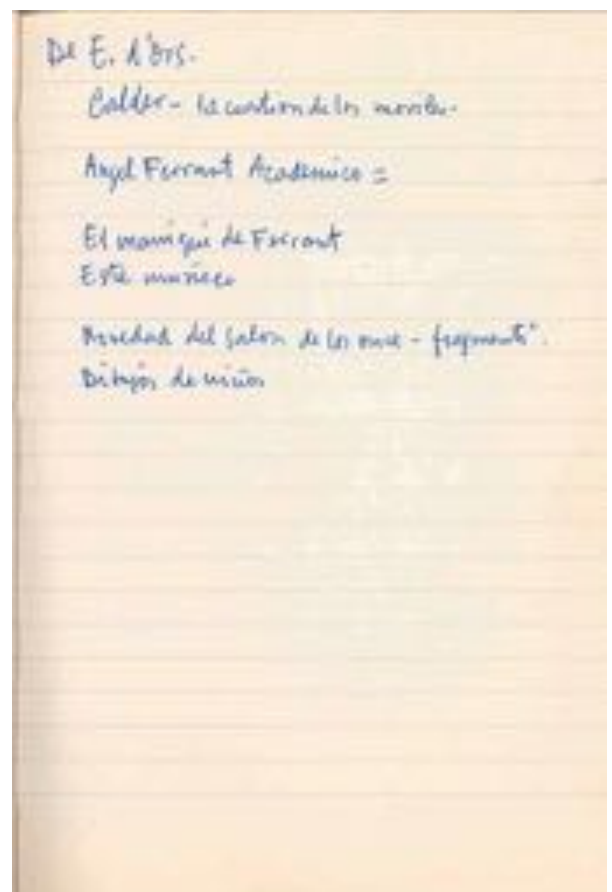 De E. d'Ors.
Calder - la cuestion de los moviles -
Angel Ferrant Academico =
El maniqui de Ferrant
Este muñeco
del Salon de los once - fragmento".
Dibujos de niños